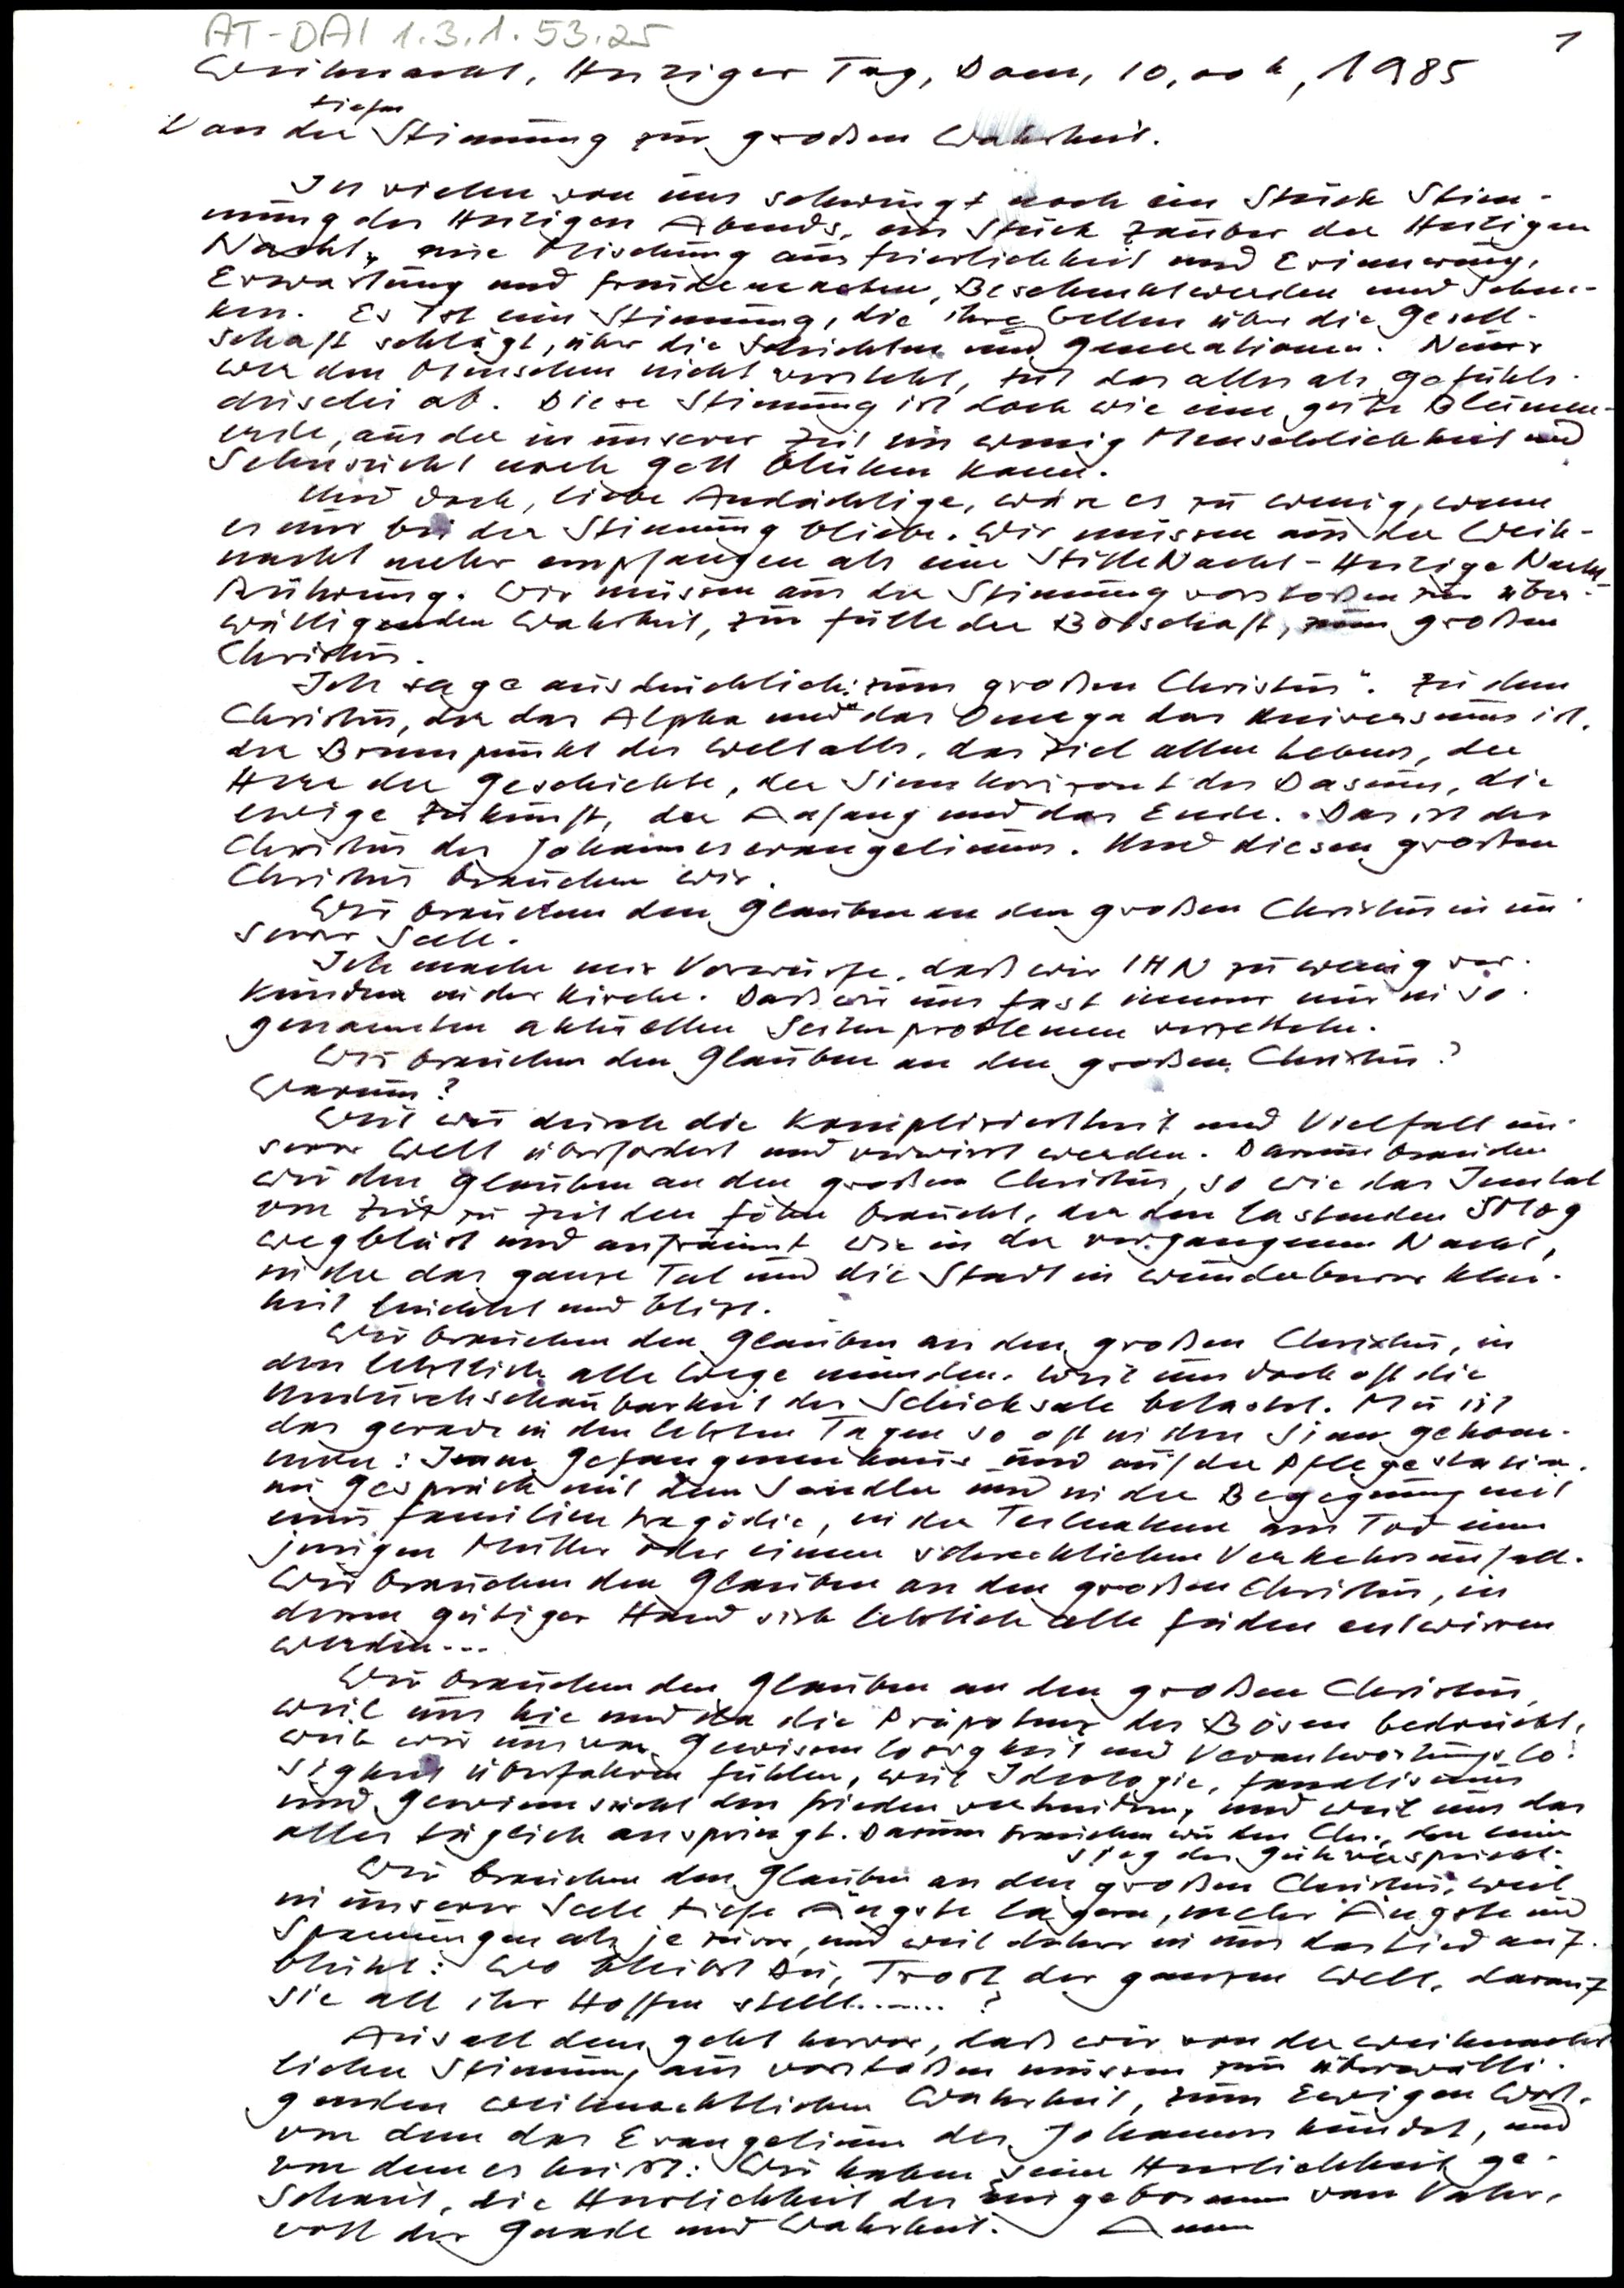 AT-DAI 1.3.1.53.25
1
Weihnacht, Heiliger Tag, Dom, 10,00 h, 1985
tiefen
Von der Stimmung zur großen Wahrheit.
In vielen von uns schwingt noch ein Stück Stim-
mung des Heiligen Abends, ein Stück Zauber der Heiligen
Nacht, eine Mischung aus Feierlichkeit und Erinnerung,
Erwartung und Freudemachen, Beschenktwerden und Schen-
ken. Es ist eine Stimmung, die ihre Wellen über die Gesell-
schaft schlägt, über die Schichten und Generationen. Nur
wer den Menschen nicht versteht, tut das alles als Gefühls-
duselei ab. Diese Stimmung ist doch wie eine gute Blumen-
erde, aus der in unserer Zeit ein wenig Menschlichkeit und
Sehnsucht nach Gott blühen kann.
Und doch, liebe Andächtige, wäre es zu wenig, wenn
es nur bei der Stimmung bliebe. Wir müssen aus der Weih-
nacht mehr empfangen als eine Stille Nacht-Heilige Nacht-
Rührung. Wir müssen aus der Stimmung vorstoßen zur über-
wältigenden Wahrheit, zur Fülle der Botschaft, zum großen
Christus.
Ich sage ausdrücklich: zum großen Christus". Zu dem
Christus, der das Alpha und das Omega des Universums ist,
der Brennpunkt des Weltalls, das Ziel allen Lebens, der
Herr der Geschichte, der Sinnhorizont des Daseins, die
ewige Zukunft, der Anfang und das Ende. Das ist der
Christus des Johannesevangeliums. Und diesen großen
Christus brauchen wir.
Wir brauchen den Glauben an den großen Christus in un-
serer Seele.
Ich mache mir Vorwürfe, daß wir IHN zu wenig ver-
künden in der Kirche. Daß wir uns fast immer nur in so-
genannten aktuellen Seitenproblemen verzetteln.
Wir brauchen den Glauben an den großen Christus?
Warum?
Weil wir durch die Kompliziertheit und Vielfalt un-
serer Welt überfordert und verwirrt werden. Darum brauchen
wir den Glauben an den großen Christus, so wie das Inntal
von Zeit zu Zeit den Föhn braucht, der den lastenden SMog
wegbläst und aufräumt wie in der vergangenen Nacht,
in der das ganze Tal und die Stadt in wunderbarer Klar-
heit leuchtet und blitzt.
Wir brauchen den Glauben an den großen Christus, in
den letztlich alle Wege münden. Weil uns doch oft die
Undurchschaubarkeit der Schicksale belastet. Mir ist
das gerade in den letzten Tagen so oft in den Sinn gekom-
men: Im Gefangenenhaus und auf der Pflegestation,
im Gespräch mit dem Sandler und in der Begegnung mit
einer Familientragödie, in der Teilnahme am Tod einer
jungen Mutter oder einem schrecklichen Verkehrsunfall.
Wir brauchen den Glauben an den großen Christus, in
dessen gütiger Hand sich letztlich alle Fäden entwirren
werden...
Wir brauchen den Glauben an den großen Christus,
weil uns hie und da die Präpotenz des Bösen bedrückt,
weil wir uns von Gewissenlosigkeit und Verantwortungslo-
sigkeit überfahren fühlen, weil Ideologie, Fanatismus
und Gewinnsucht den Frieden verhindern, und weil uns das
alles täglich anspringt. Darum brauchen wir den Chr., der einen
Sieg des Guten verspricht.
Wir brauchen den Glauben an den großen Christus, weil
in unserer Seele tiefe Ängste lagern, mehr Ängste und
Spannungen als je zuvor, und weil daher in uns das Lied auf-
blüht: Wo bleibst Du, Trost der ganzen Welt, darauf
sie all ihr Hoffen stellt.......?
Aus all dem geht hervor, daß wir von der weihnacht-
lichen Stimmung aus vorstoßen müssen zur überwälti-
genden weihnachtlichen Wahrheit, zum Ewigen Wort,
von dem das Evangelium des Johannes kündet, und
von dem es heißt: Wir haben seine Herrlichkeit ge-
schaut, die Herrlichkeit des Eingeborenen vom Vater,
voll der Gnade und Wahrheit. Amen